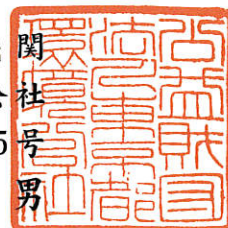 関
社
5号
男
公益財団
法人東京都
環境公社